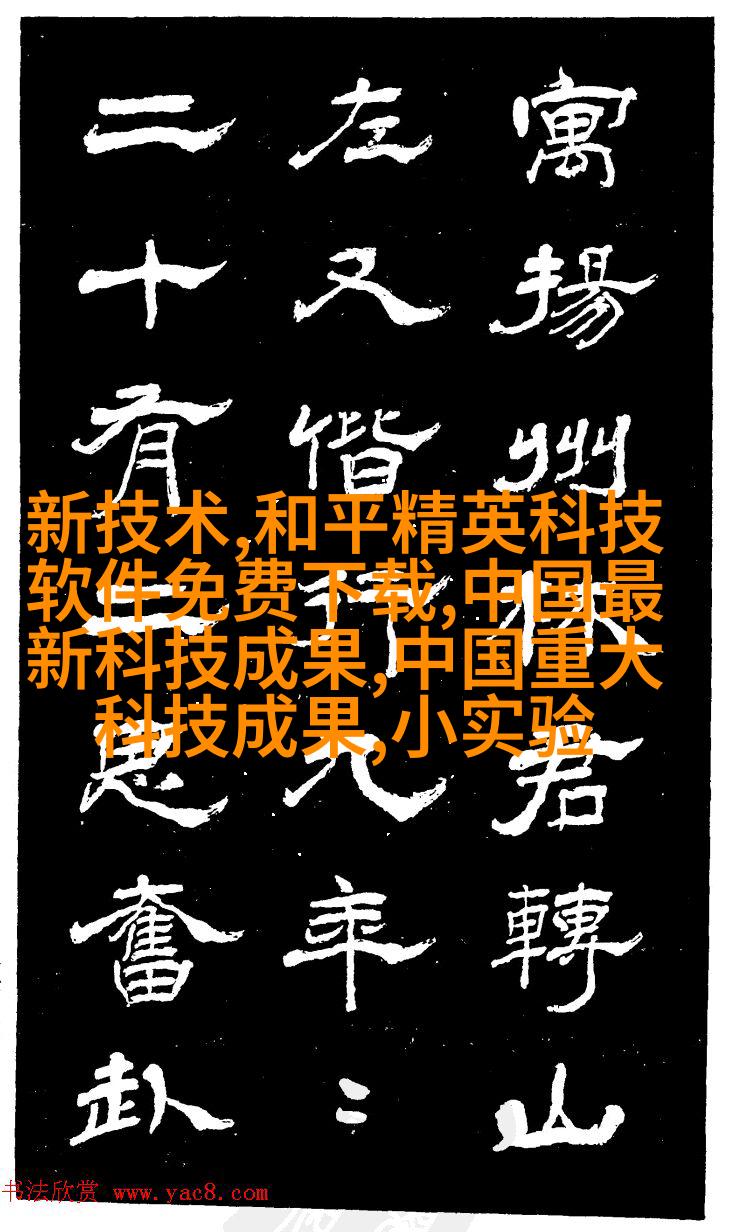 寓揚州君轉山
左又偕行九年〻
二十有二思奮赴
新技术,和平精英科技
软件免费下载,中国最
新科技成果,中国重大
科技成果,小实验
书法欣赏 www.yac8.com